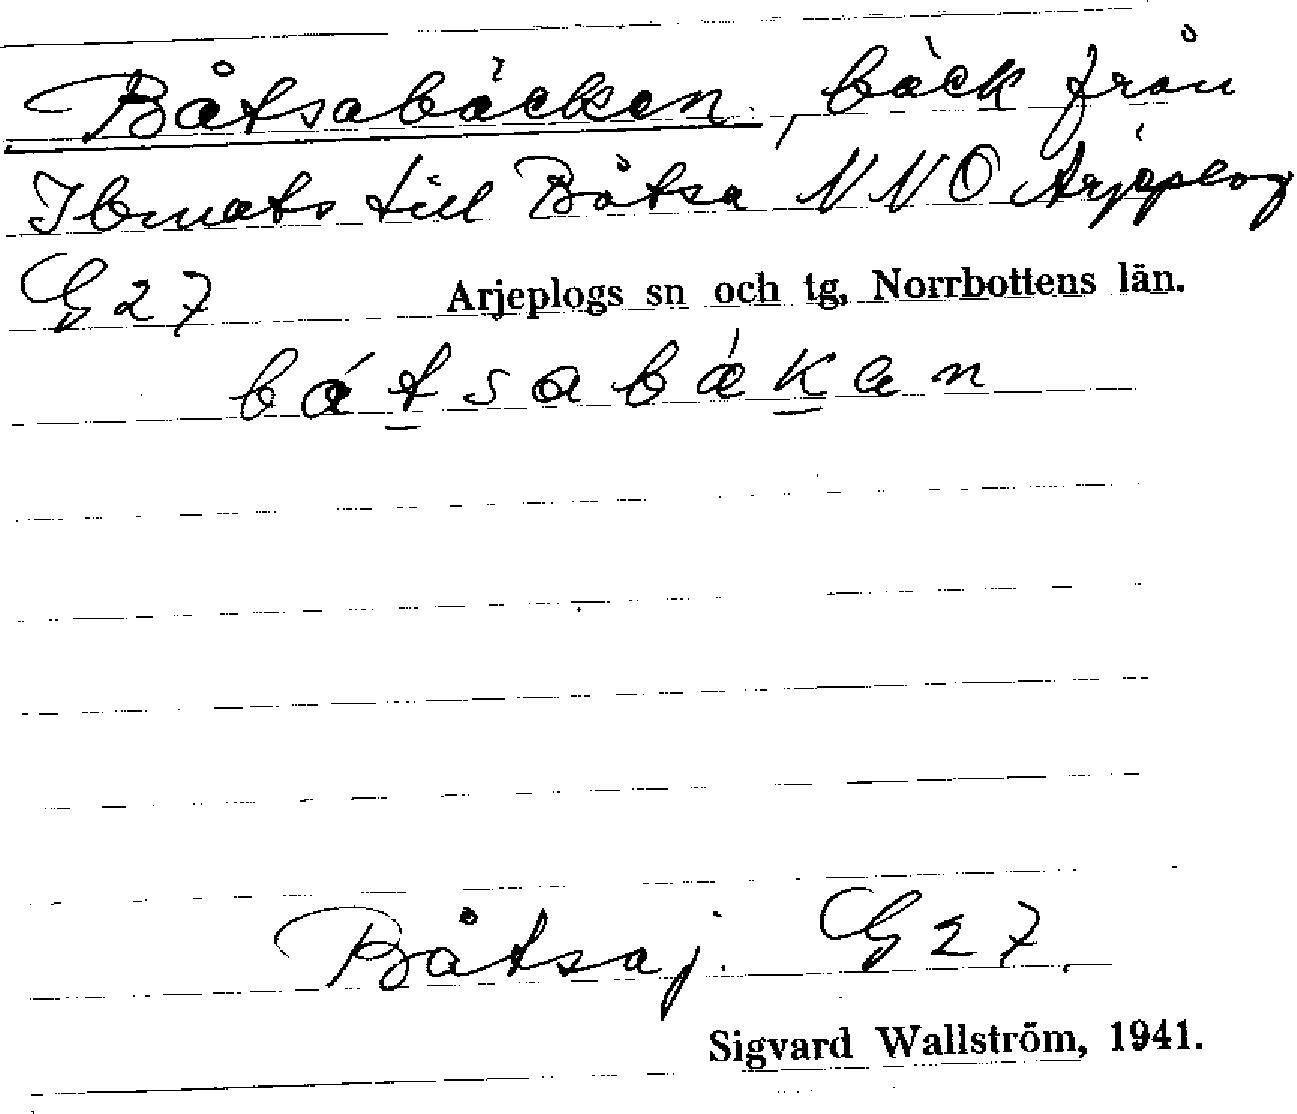 Båtsabäcken, bäck från
Ibmats till Båtsa NNO Arjeplog
G 27 Arjeplogs sn och tg, Norrbottens län.
bátsabǽkan
Båtsaj. G 27.
Sigvard Wallström, 1941.